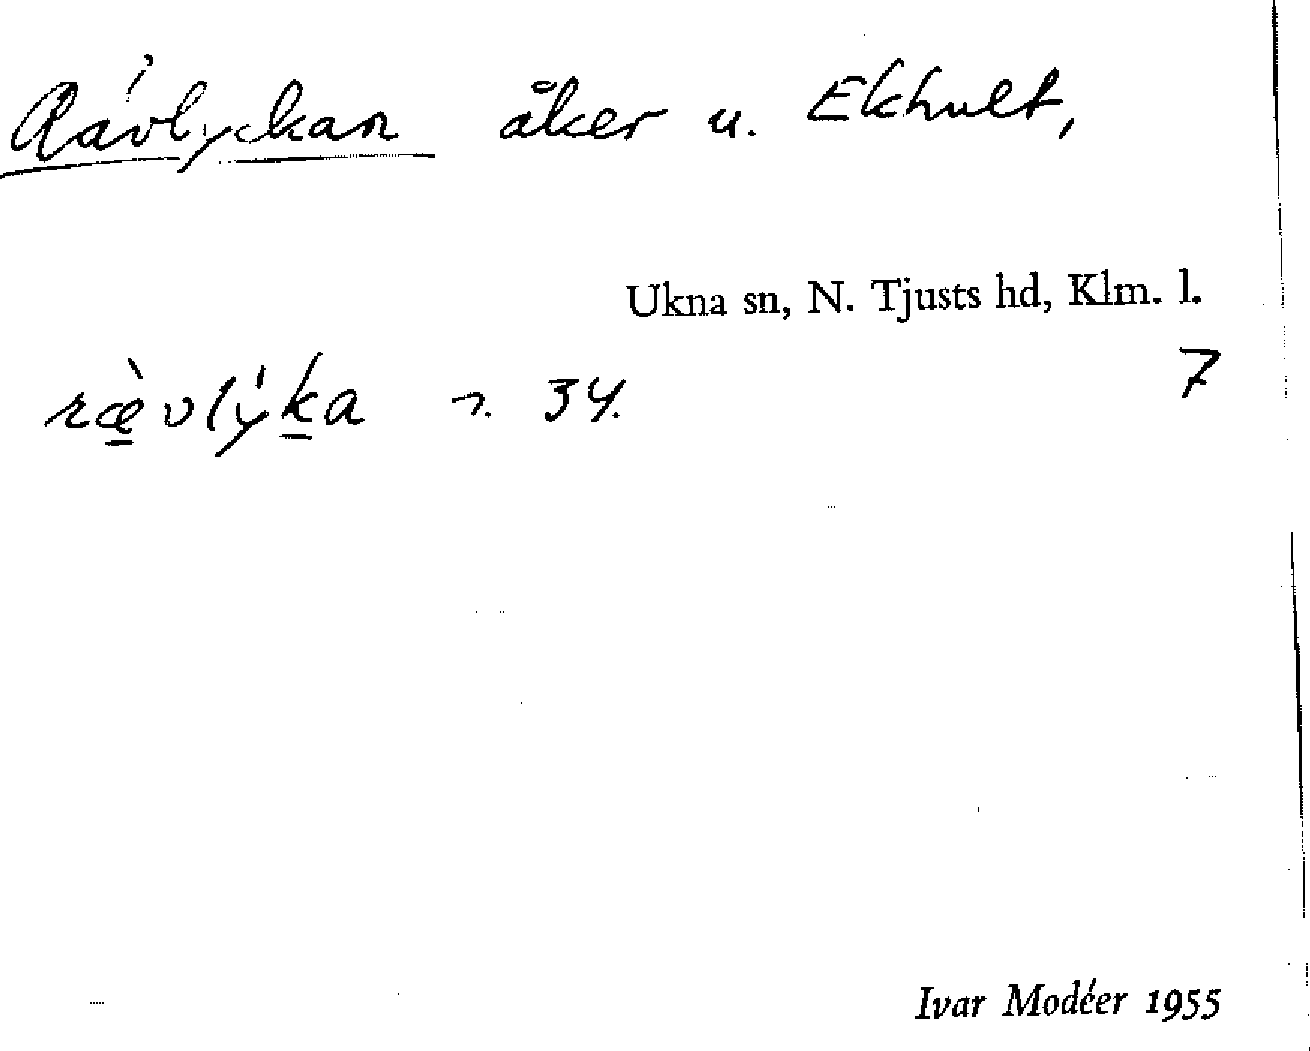 Rävlyckan åker u. Ekhult,
Ukna sn, N. Tjusts hd, Klm. l.
7
ræ̀vlýka 7. 34.
Ivar Modéer 1955